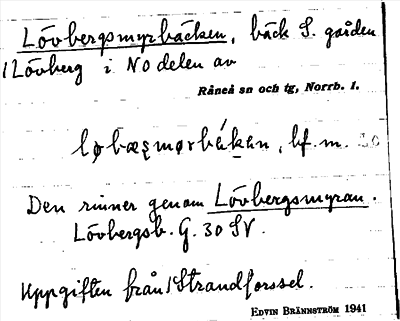 Lövbergsmyrbäcken, bäck S. gården
1 Lövberg i NO delen av
Råneå sn och tg, Norrb. l.
bf. m.
Den rinner genom Lövbergsmyran.
Lövbergsb. G. 30 SV.
Uppgiften från 1 Strandforssel.
EDVIN BRÄNNSTRÖM 1941